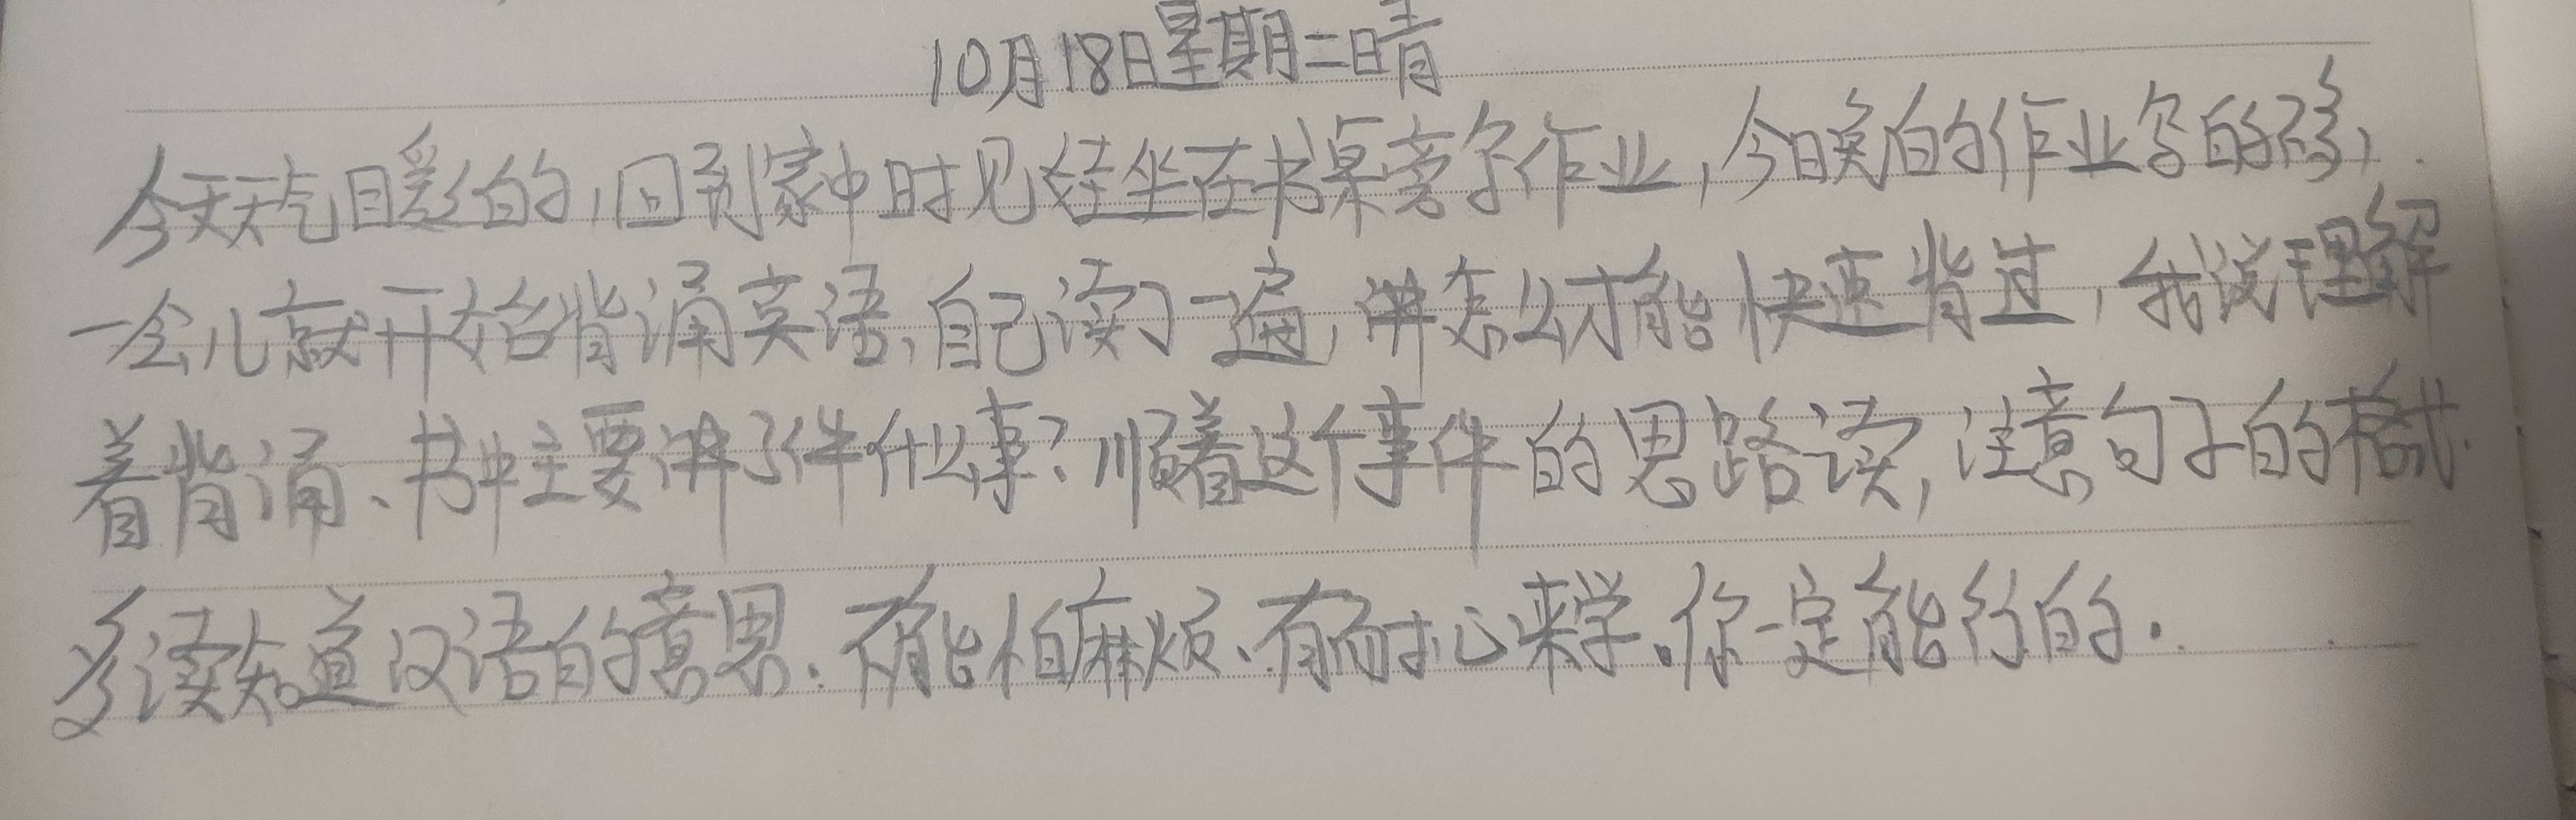 10月18日星期二晴
今天天气暖的，回到家中时见娃坐在书桌旁写作业，今晚的作业写的够，
一会儿就开始背诵英语、自己读了一遍，讲怎么才能快速背过，我说理解
着背诵、书中主要讲了件什么事？顺着这个事件的思路读，注意句子的格式.
多读知道汉语的意思. 不能怕麻烦、有耐心来学。你一定能行的.